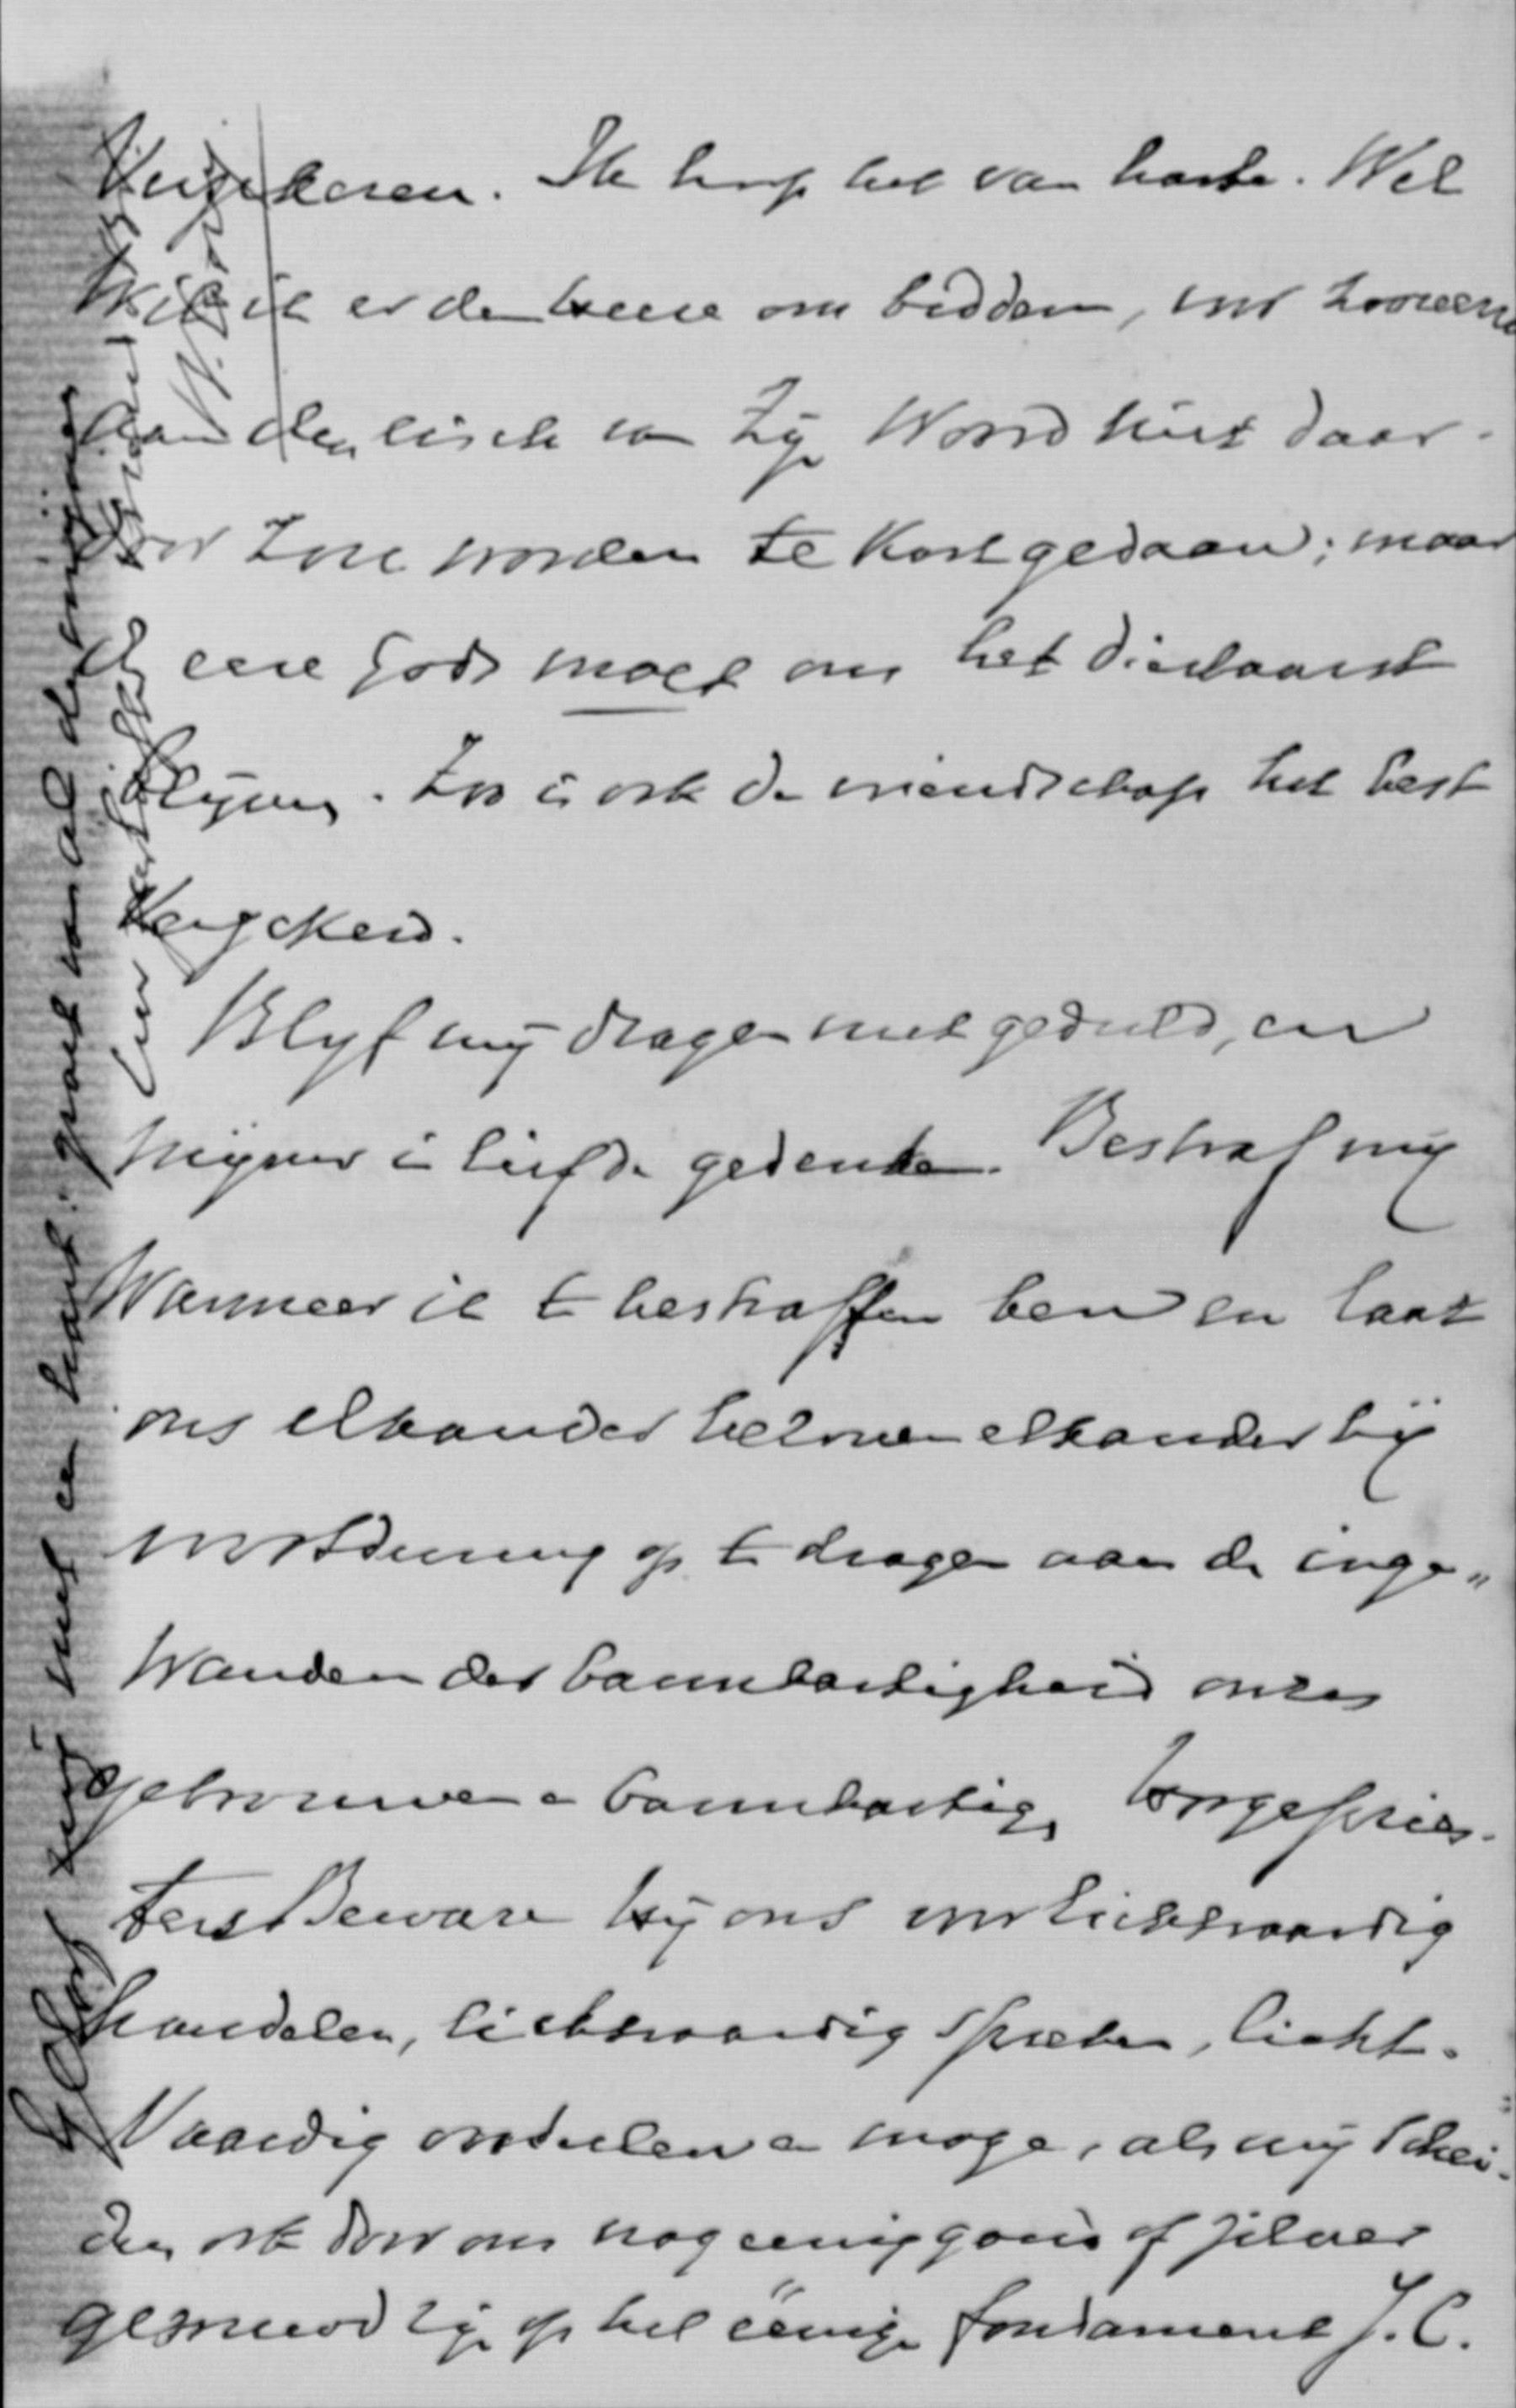 Verzekeren. Ik hoop het van harte. Wel
wil ik er den Heere om bidden, voor zooveel
aan den eisch van Zijn Woord niet daar-
door zou worden te kort gedaan; maar
de eere Gods moet ons het dierbaarst
blijven. Zoo is ook de vriendschap het best
verzekerd.
Blijf mij dragen met geduld, en
mijner in liefde gedenken. Bestraf mij
Wanneer ik te bestraffen ben en laat
ons elkander helpen elkander bij
voortduring op te dragen aan de inge„
wanden der barmhartigheid onzes
getrouwen en barmhartigen Hoogepries-
ters Beware Hij ons voor lichtvaardig
handelen, lichtvaardig spreken, licht-
Vaardig oordeelen en moge, als wij schei-
den ook door ons nog eenig goud of zilver
gebouwd zijn op het eenige fondament J. C.
Gegroet zijt met en
haart. groet van al de mijnen